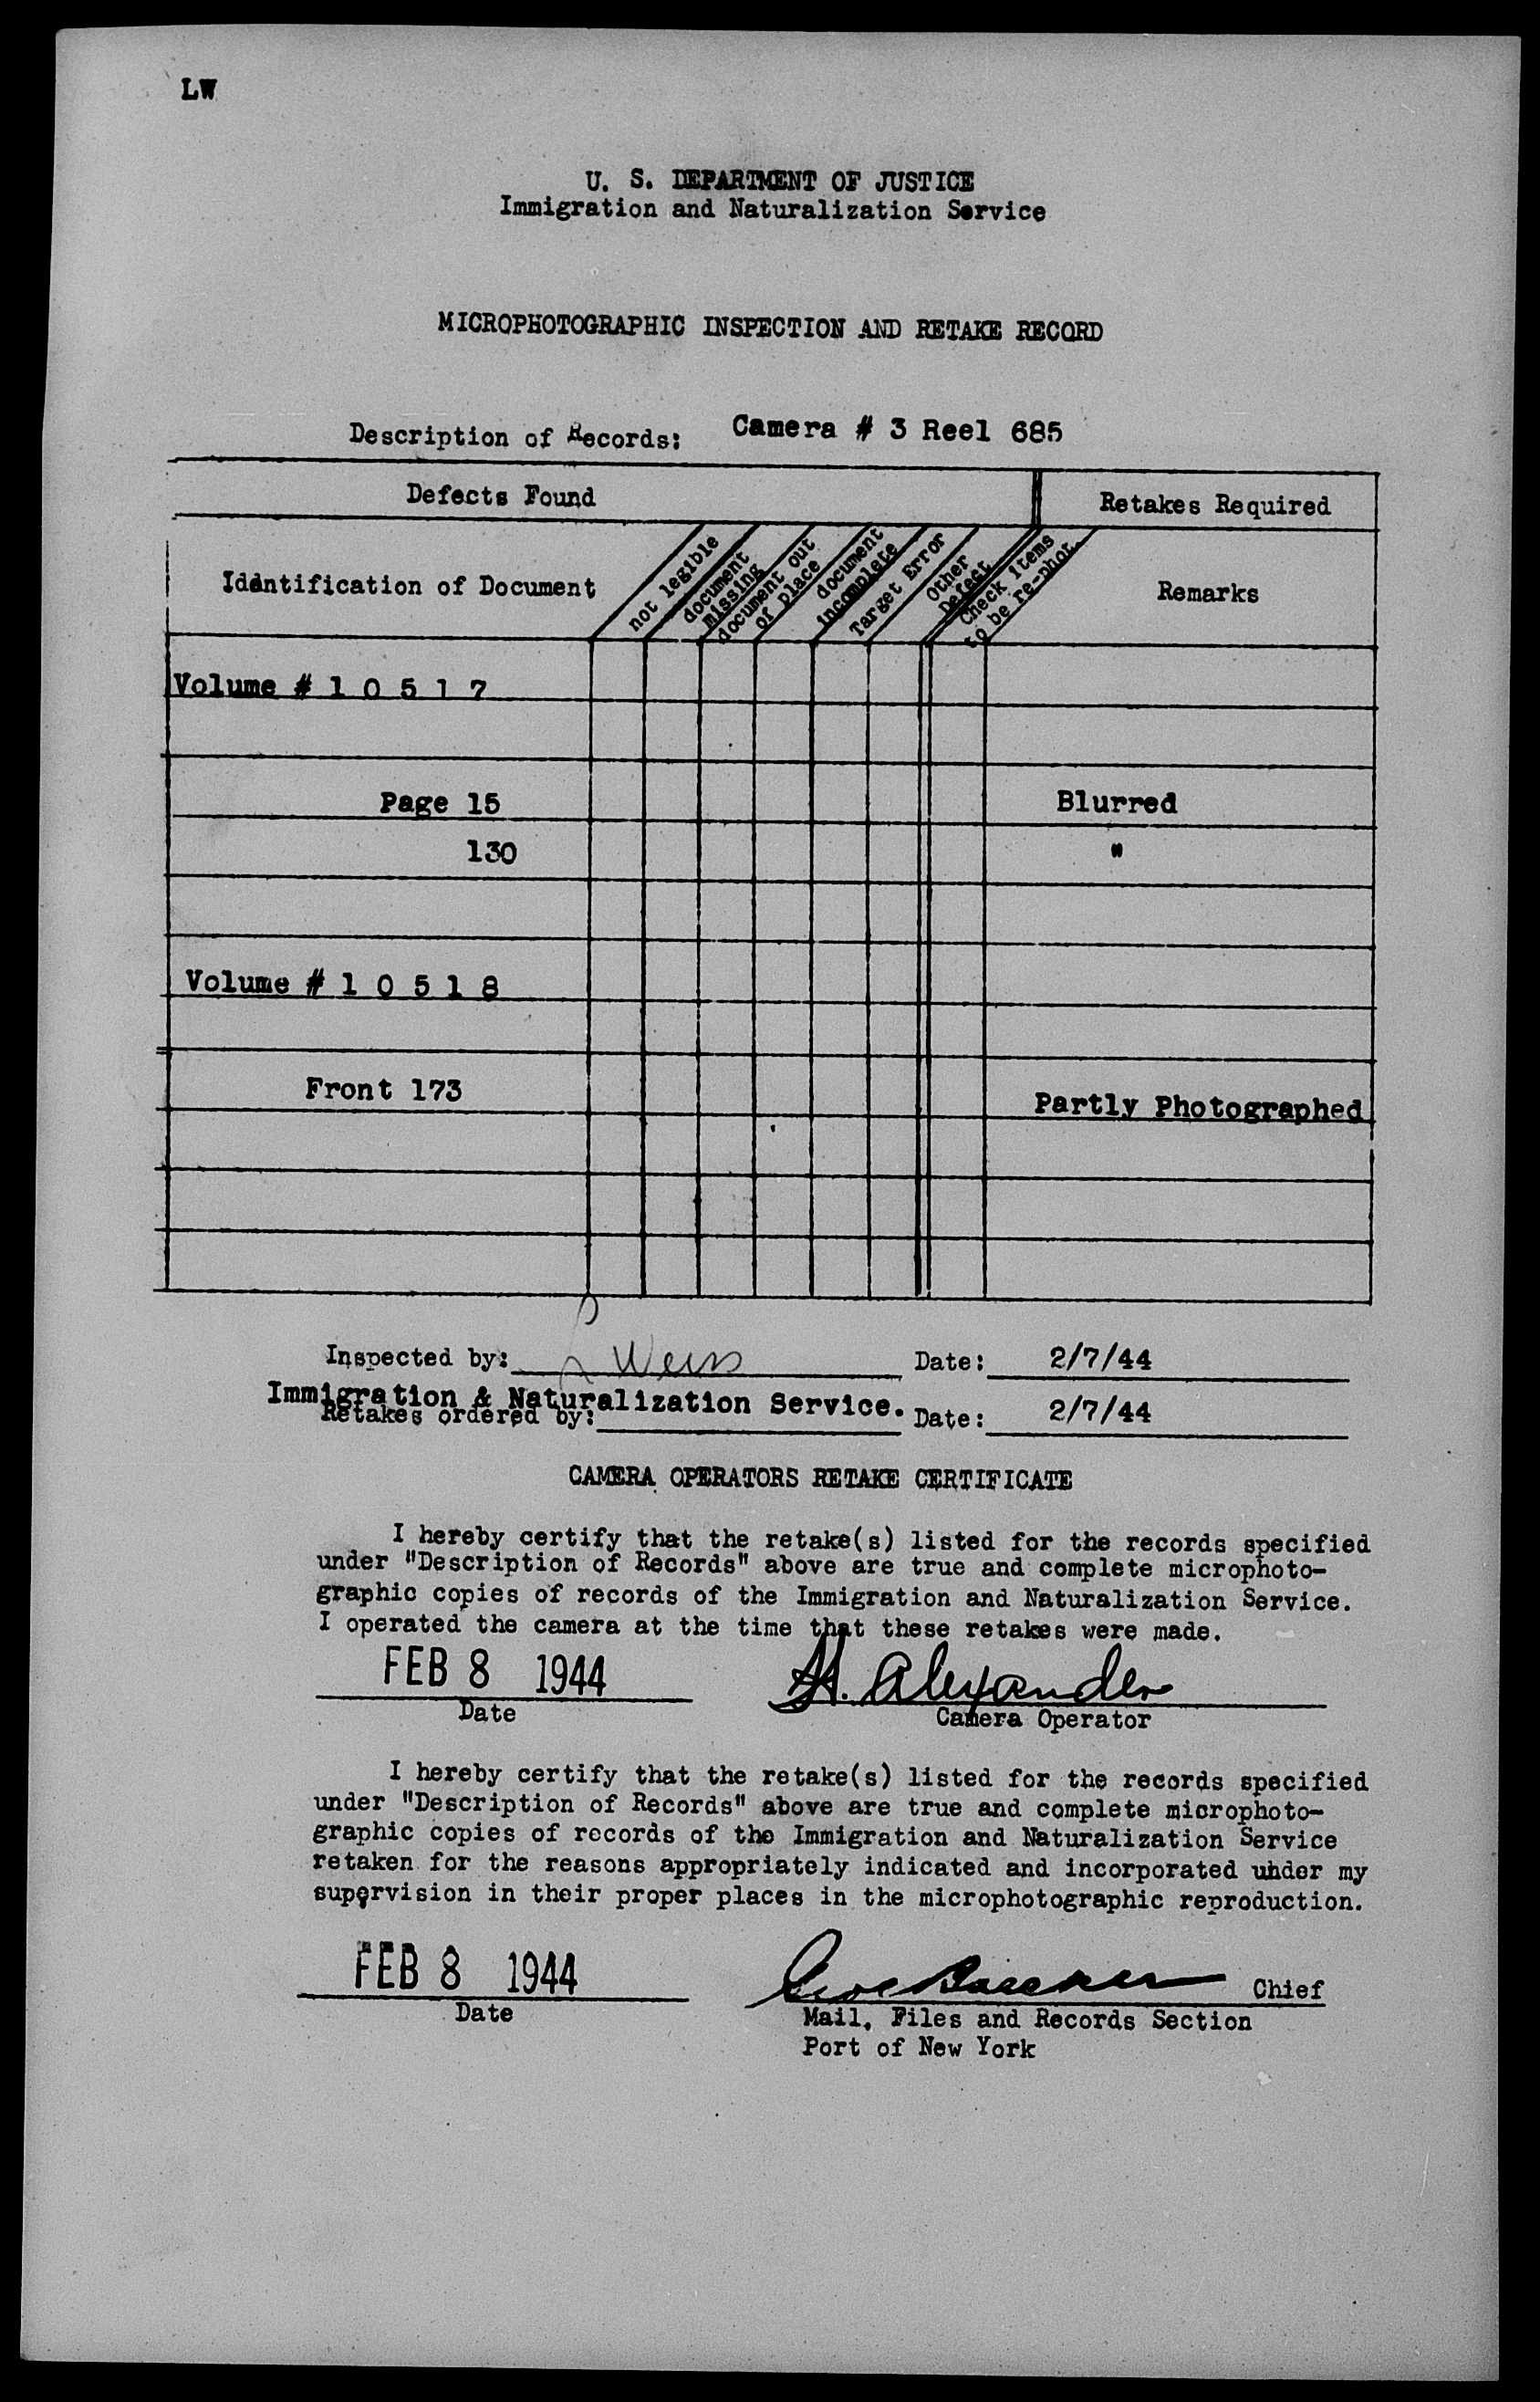 LW
U. S. DEPARTMENT OF JUSTICE
Immigration and Naturalization Service
MICROPHOTOGRAPHIC INSPECTION AND RETAKE RECORD
Description of Records: Camera # 3 Reel 685
Defects Found Retakes Required
Identification of Document
not legible
document
missing
document out
of place
document
incomplete
Target Error
Other
Defect
Check items
to be re-phot.
Remarks
Volume # 1 0 5 1 7
Page 15 Blurred
130 "
Volume # 1 0 5 1 8
Front 173 Partly Photographed
Inspected by: Weiss Date: 2/7/44
Immigration & Naturalization Service.
Retakes ordered by: Date: 2/7/44
CAMERA OPERATORS RETAKE CERTIFICATE
I hereby certify that the retake(s) listed for the records specified
under "Description of Records" above are true and complete microphoto-
graphic copies of records of the Immigration and Naturalization Service.
I operated the camera at the time that these retakes were made.
FEB 8 1944 H. Alexander
Date Camera Operator
I hereby certify that the retake(s) listed for the records specified
under "Description of Records" above are true and complete microphoto-
graphic copies of records of the Immigration and Naturalization Service
retaken for the reasons appropriately indicated and incorporated under my
supervision in their proper places in the microphotographic reproduction.
FEB 8 1944 Chief
Date Mail, Files and Records Section
Port of New York